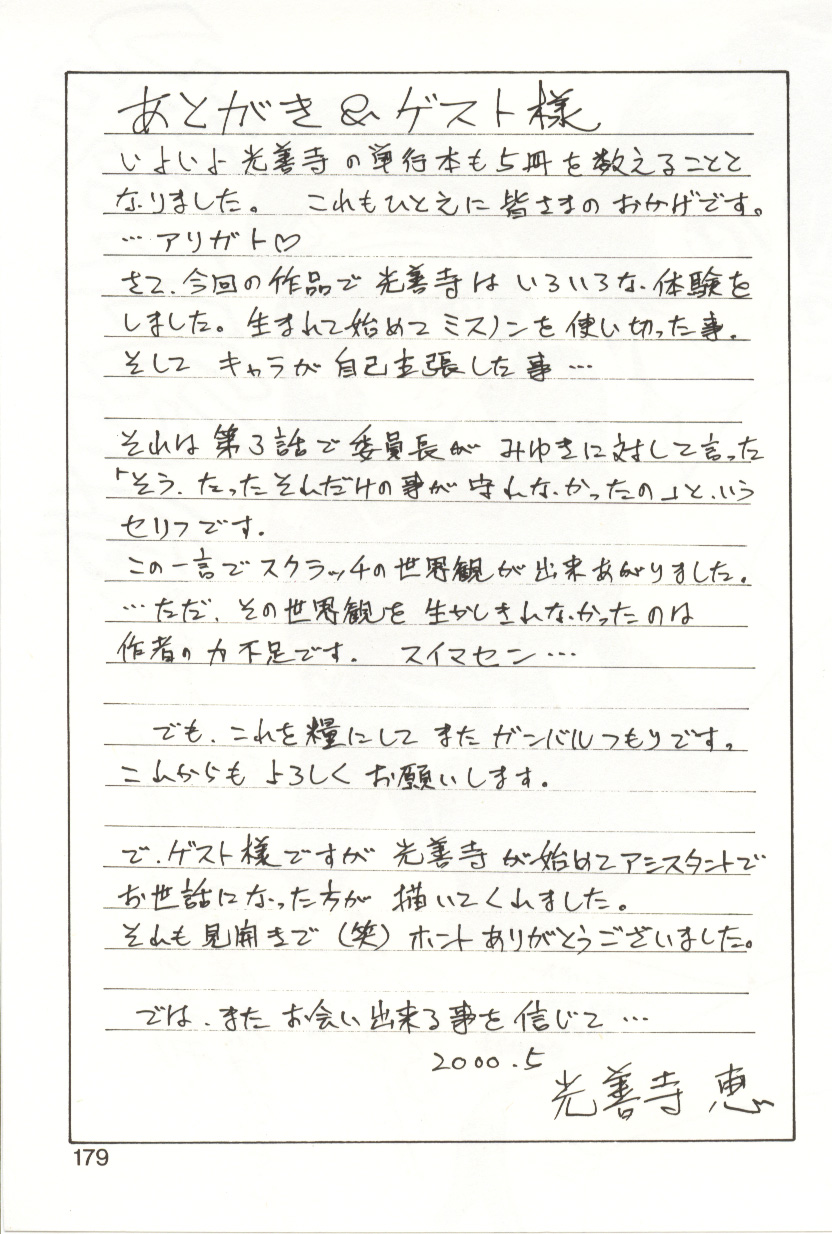 あとがき&ゲスト様
いよいよ光善寺の単行本も5冊を数えることと
なりました。 これもひとえに皆さまのおかげです。
…アリガト♡
さて、今回の作品で光善寺はいろいろな体験を
しました。生まれて始めてミスノンを使い切った事、
そして キャラが自己主張した事…
それは第3話で委員長がみゆきに対して言った
「そう、たったそれだけの事が守れなかったの」という
セリフです。
この一言でスクラッチの世界観が出来あがりました。
…ただ、その世界観を生かしきれなかったのは
作者の力不足です。 スイマセン…
でも、これを糧にしてまたガンバルつもりです。
これからもよろしくお願いします。
で、ゲスト様ですが光善寺が始めてアシスタントで
お世話になった方が描いてくれました。
それも見開きで(笑)ホントありがとうございました。
では、またお会い出来る事を信じて…
2000.5
光善寺 恵
179